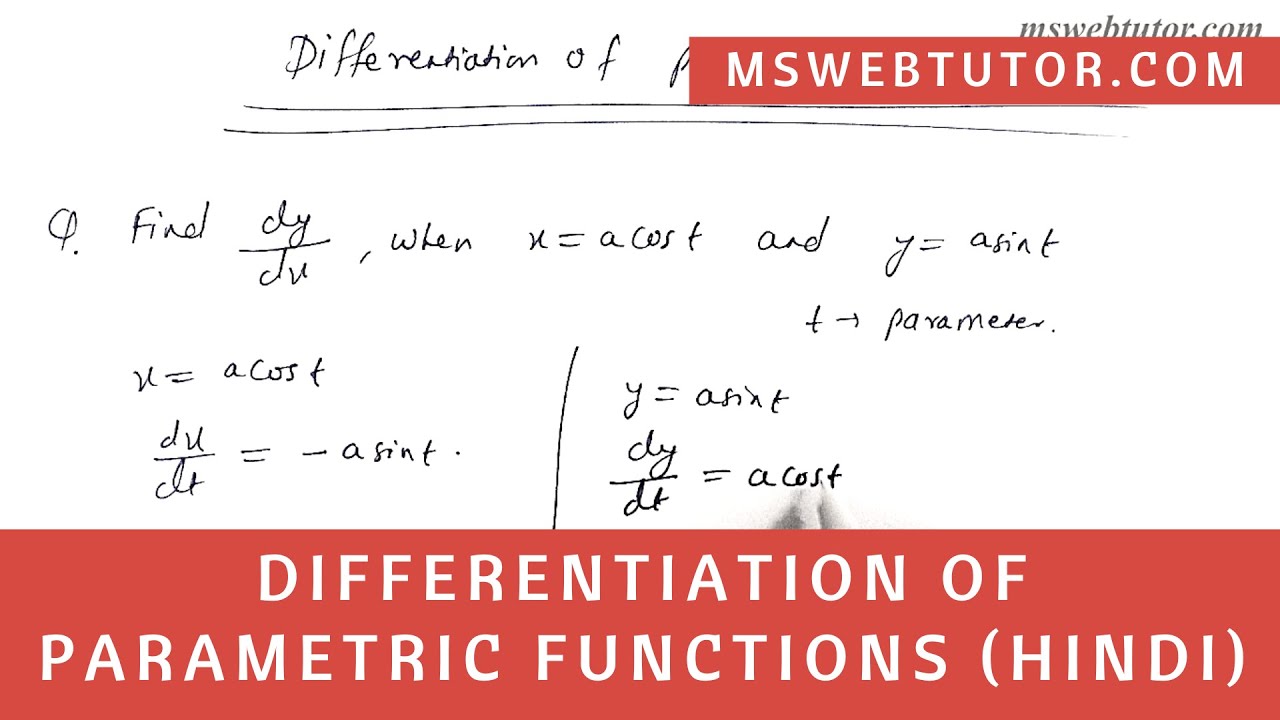 mswebtutor.com
Differentiation of
MSWEBTUTOR.COM
Q. Find dy/dx, when x = a cos t and y = a sin t
t → parameter.
x = a cos t
dx/dt = - a sin t.
y = a sin t
dy/dt = a cos t
DIFFERENTIATION OF
PARAMETRIC FUNCTIONS (HINDI)